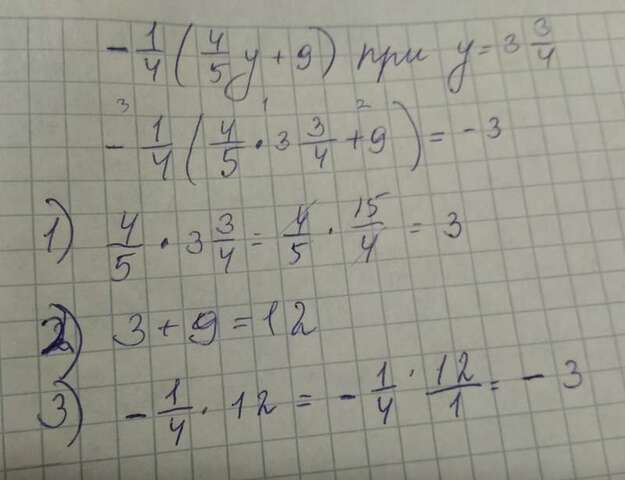 -1/4 (4/5 y + 9) при y = 3 3/4
3 1 2
-1/4 (4/5 · 3 3/4 + 9) = -3
1) 4/5 · 3 3/4 = 4/5 · 15/4 = 3
2) 3 + 9 = 12
3) -1/4 · 12 = -1/4 · 12/1 = -3